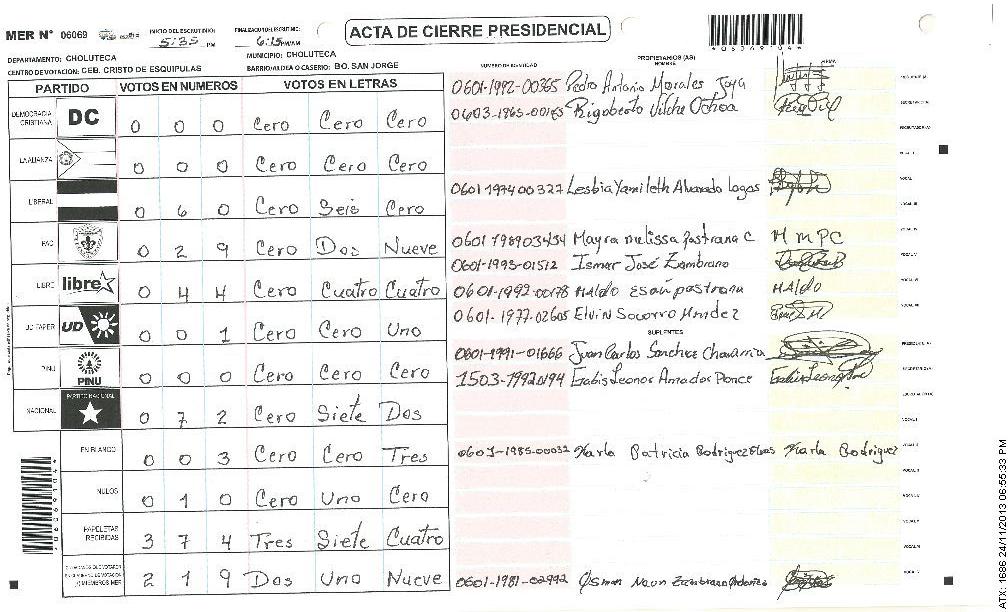 MER N° 06069
INICIO DEL ESCRUTINIO: 5:35 PM
FINALIZACION DEL ESCRUTINIO: 6:15 PM/AM
ACTA DE CIERRE PRESIDENCIAL
DEPARTAMENTO: CHOLUTECA
MUNICIPIO: CHOLUTECA
CENTRO DE VOTACION: CEB. CRISTO DE ESQUIPULAS
BARRIO/ALDEA O CASERIO: BO. SAN JORGE
PARTIDO VOTOS EN NUMEROS VOTOS EN LETRAS
DEMOCRACIA CRISTIANA DC 0 0 0 Cero Cero Cero
LA ALIANZA 0 0 0 Cero Cero Cero
LIBERAL 0 6 0 Cero Seis Cero
PAC 0 2 9 Cero Dos Nueve
LIBRE libre 0 4 4 Cero Cuatro Cuatro
UD FAPER UD 0 0 1 Cero Cero Uno
PINU PINU 0 0 0 Cero Cero Cero
NACIONAL PARTIDO NACIONAL 0 7 2 Cero Siete Dos
EN BLANCO 0 0 3 Cero Cero Tres
NULOS 0 1 0 Cero Uno Cero
PAPELETAS RECIBIDAS 3 7 4 Tres Siete Cuatro
2 1 9 Dos Uno Nueve
NUMERO DE IDENTIDAD
PROPIETARIOS (AS)
NOMBRE
FIRMA
0601-1992-00365 Pedro Antonio Morales Joya
0603-1965-00165 Rigoberto Vilche Ochoa
0601 1974 00327 Lesbia Yamileth Alvarado Lagos
0601 198903454 Mayra melissa pastrana C M M P C
0601-1993-01512 Ismar José Zambrano
0601-1992-00178 HAldo esaú pastrana HAldo
0601-1977-02605 Elvin Socorro
SUPLENTES
0601-1991-01666 Juan Carlos Sanchez Chavarria
1503-1992 0194 Gabis Leonor Amador Ponce
0601-1985-00032 Karla Patricia Rodriguez Karla Rodriguez
0601-1981-02992 Osman Naun Zambrano
ATX 1686 24/11/2013 06:55:33 PM